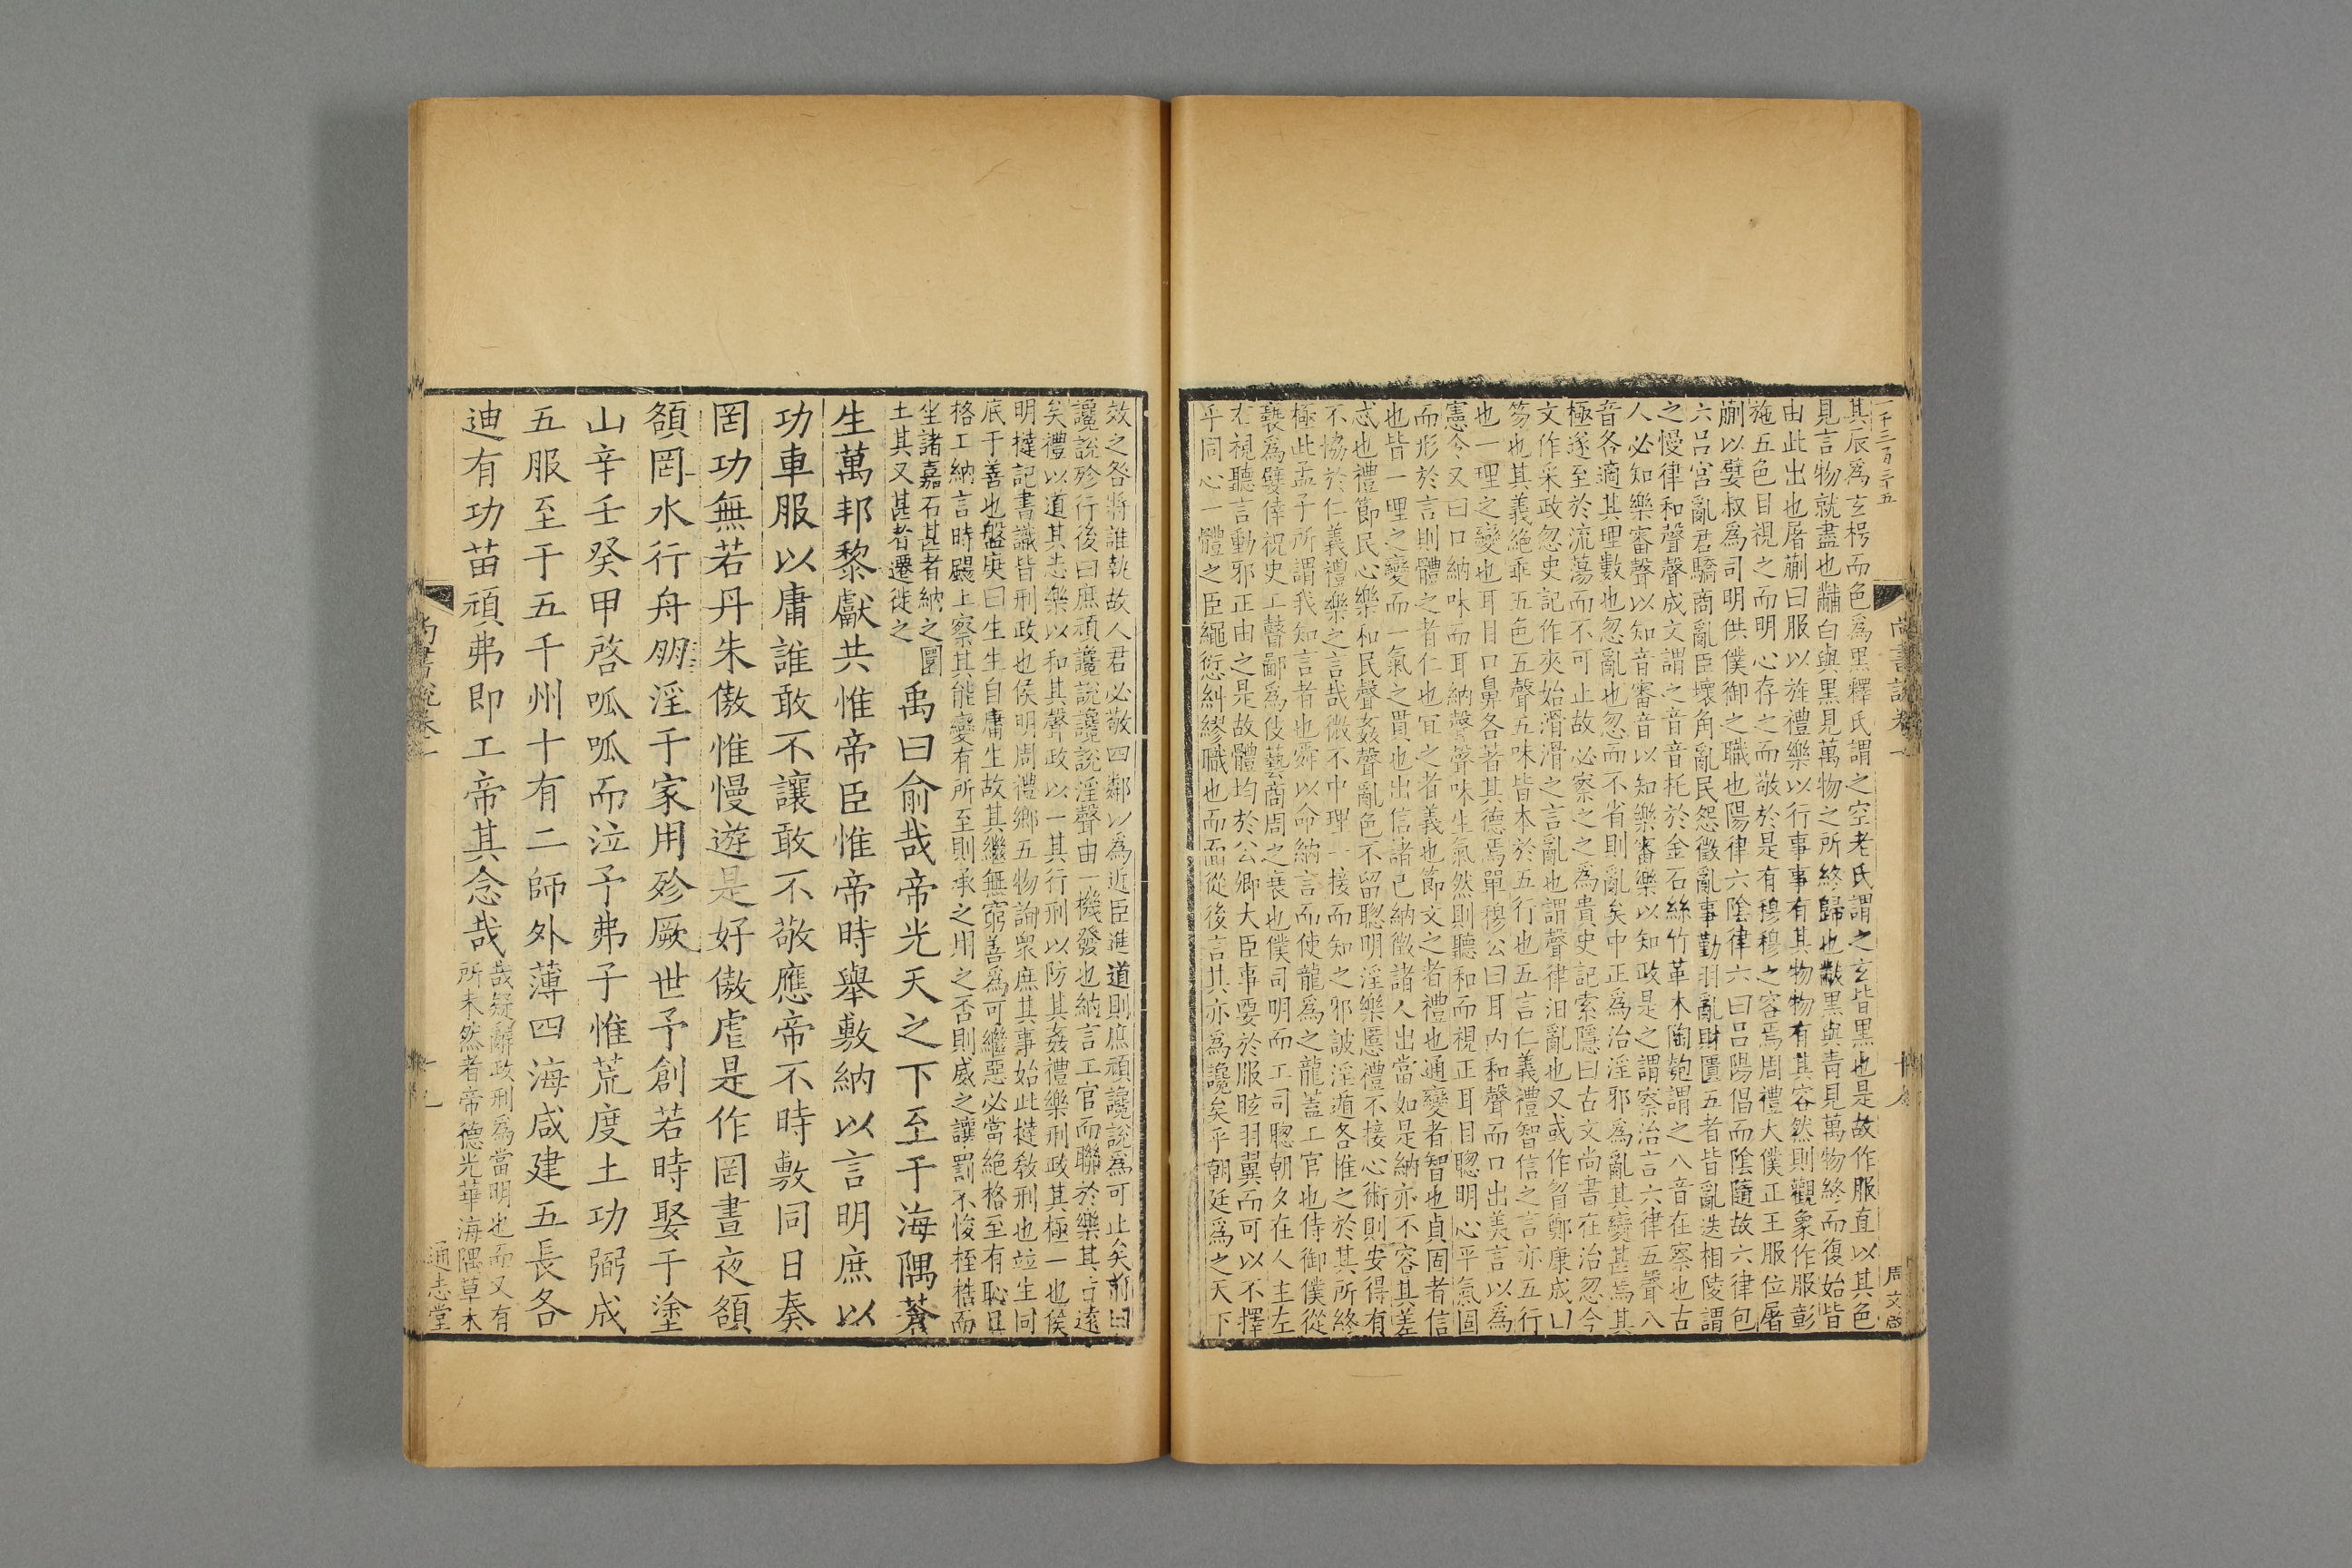 一千三百三十五
尚書說卷一
周文啓
其辰爲玄枵而色爲黑釋氏謂之空老氏謂之玄皆黑也是故作服直以其色
見言物就盡也黼白與黑見萬物之所終歸也黻黑與青見萬物終而復始皆
由此出也屠蒯曰服以旌禮樂以行事事有其物物有其容然則觀象作服彰
施五色目視之而明心存之而敬於是有穆穆之容焉周禮大僕正王服位屠
蒯以嬖叔爲司明供僕御之職也陽律六陰律六曰呂陽倡而陰隨故六律包
六呂宮亂君驕商亂臣壞角亂民怨徵亂事勤羽亂財匱五者皆亂迭相陵謂
之慢律和聲聲成文謂之音音托於金石絲竹革木陶匏謂之八音在察也古
人必知樂審聲以知音審音以知樂審樂以知政是之謂察治言六律五聲八
音各適其理數也忽亂也忽而不省則亂矣中正爲治淫邪爲亂其變甚焉其
極遂至於流蕩而不可止故必察之之爲貴史記索隱曰古文尚書在治忽今
文作采政忽史記作來始滑滑之言亂也謂聲律汨亂也又或作曶鄭康成曰
笏也其義絕乖五色五聲五味皆本於五行也五言仁義禮智信之言亦五行
也一理之變也耳目口鼻各著其德焉單穆公曰耳內和聲而口出美言以爲
憲令又曰口納味而耳納聲聲味生氣然則聽和而視正耳目聰明心平氣固
而形於言則體之者仁也宜之者義也節文之者禮也通變者智也貞固者信
也皆一理之變而一氣之貫也出信諸己納徵諸人出當如是納亦不容其差
忒也禮節民心樂和民聲姦聲亂色不留聰明淫樂慝禮不接心術則安得有
不協於仁義禮樂之言哉微不中理一接而知之邪詖淫遁各惟之於其所終
極此孟子所謂我知言者也舜以命納言而使龍爲之龍蓋工官也侍御僕從
褻爲嬖倖祝史工瞽鄙爲伎藝商周之衰也僕司明而工司聰朝夕在人主左
右視聽言動邪正由之是故體均於公卿大臣事要於服肱羽翼而可以不擇
乎同心一體之臣繩愆糾繆職也而面從後言其亦爲讒矣乎朝廷爲之天下
效之咎將誰執故人君必敬四鄰以爲近臣進道則庶頑讒說爲可止矣前曰
讒說殄行後曰庶頑讒說讒說淫聲由一機發也納言工官而聯於樂其古遠
矣禮以道其志樂以和其聲政以一其行刑以防其姦禮樂刑政其極一也侯
明撻記書識皆刑政也侯明周禮鄉五物詢衆庶其事始此撻教刑也竝生同
底于善也盤庚曰生生自庸生故其繼無窮善爲可繼惡必當絕格至有恥且
格工納言時颺上察其能變有所至則承之用之否則威之讓罰不悛桎梏而
坐諸嘉石甚者納之圜
土其又甚者遷徙之
禹曰俞哉帝光天之下至于海隅蒼
生萬邦黎獻共惟帝臣惟帝時舉敷納以言明庶以
功車服以庸誰敢不讓敢不敬應帝不時敷同日奏
罔功無若丹朱傲惟慢遊是好傲虐是作罔晝夜頟
頟罔水行舟朋淫于家用殄厥世予創若時娶于塗
山辛壬癸甲啓呱呱而泣予弗子惟荒度土功弼成
五服至于五千州十有二師外薄四海咸建五長各
迪有功苗頑弗即工帝其念哉
哉疑辭政刑爲當明也而又有
所未然者帝德光華海隅草木
尚書說卷一
十九
通志堂